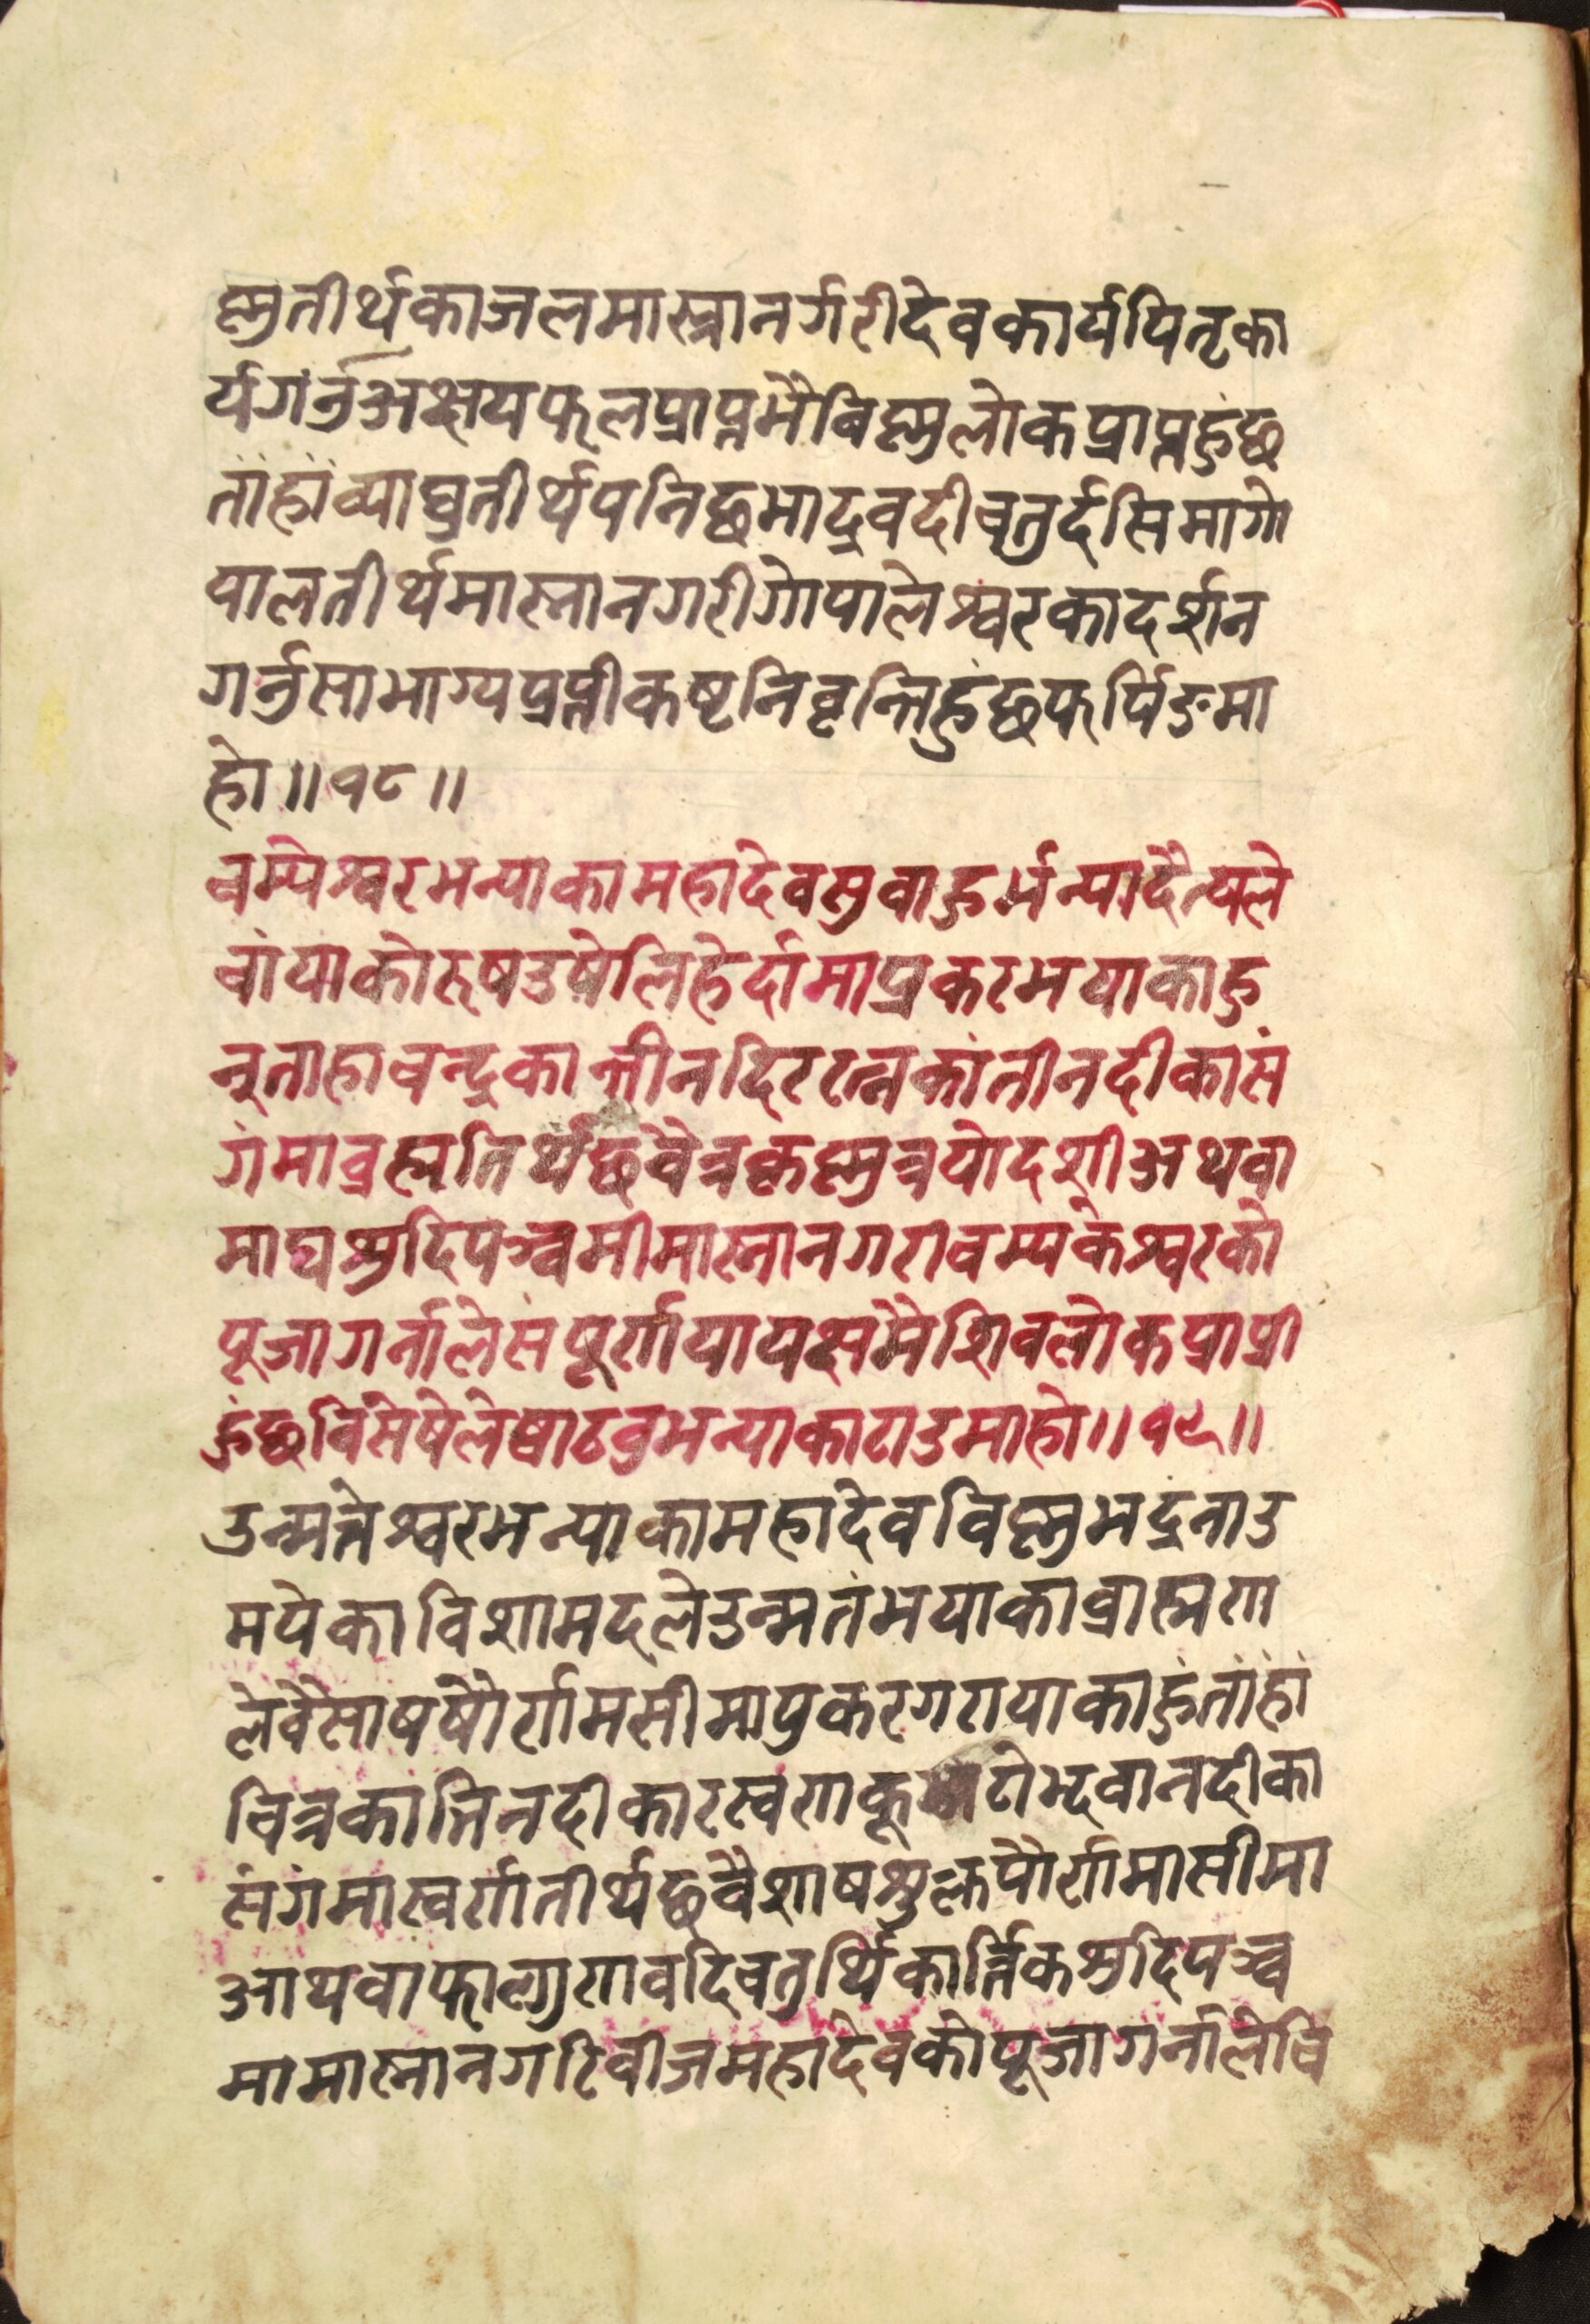 ष्णुतीर्थकाजलमास्नानर्गरीदेवकार्यपितृका
र्यगर्नुअक्षयफलप्राप्तभैविष्णुलोकप्राप्तहुंछ
तांहांव्याघ्रतीर्थपनिछभाद्रवदीचतुर्दसिमागो
पालतीर्थमास्नानगरीगोपालेश्वरकादर्शन
गर्नुसाभाग्यप्रप्तीकष्टनिवृत्तिहुंछफर्पिङमा
हो॥१८॥
चम्पेश्वरभन्याकामहादेवसुवाहुर्भन्यादैत्यले
चांपाकोरूषउषेलिहेर्दामाप्रकटभयाकाहु
न्ताहाचन्द्रकान्तीनदिररत्नकांतीनदीकासं
गंमाव्रह्मतिर्थछचैत्रकृष्णत्रयोदशीअथवा
माघशुदिपञ्चमीमास्नानगरीचम्पकेश्वरको
पूजागर्नालेसंपूर्णपापक्षमैशिवलोकप्राप्ती
हुंछविसेषेलेषाटवुभन्याकाटाउमाहो॥१९॥
उन्मत्तेश्वरभन्याकामहादेवविष्णुभद्रनाउ
मपेकाविशामदलेउन्मतंभयाकाव्राह्मण
लेवैसाषषौर्णामसीमाप्रकटगरायाकाहुंतांहां
चित्रकान्तिनदीकारस्वर्णकू टोद्भवानदीका
संगंमास्वर्णतीर्थछवैशाषशुक्लपौर्णामासीमा
आथवाफाल्गुणवदिचतुर्थिकार्त्तिकशुदिपञ्च
मीमास्नानगरिवीजमहादेवकोपूजागर्नालेवि